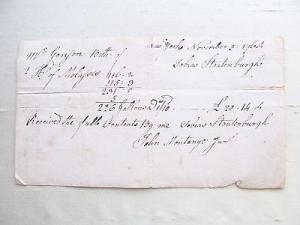 New York November 5 1764
Mr Garison Bott of Tobias Stoutenburgh
2 Hhd of Molases 116 - 2
115 - 3
231 - 5
5
226 Gallons @ 1/10 £ 20 .. 14 .. 4
Received the full Contents By me Tobias Stoutenburgh
John Montanye Junr